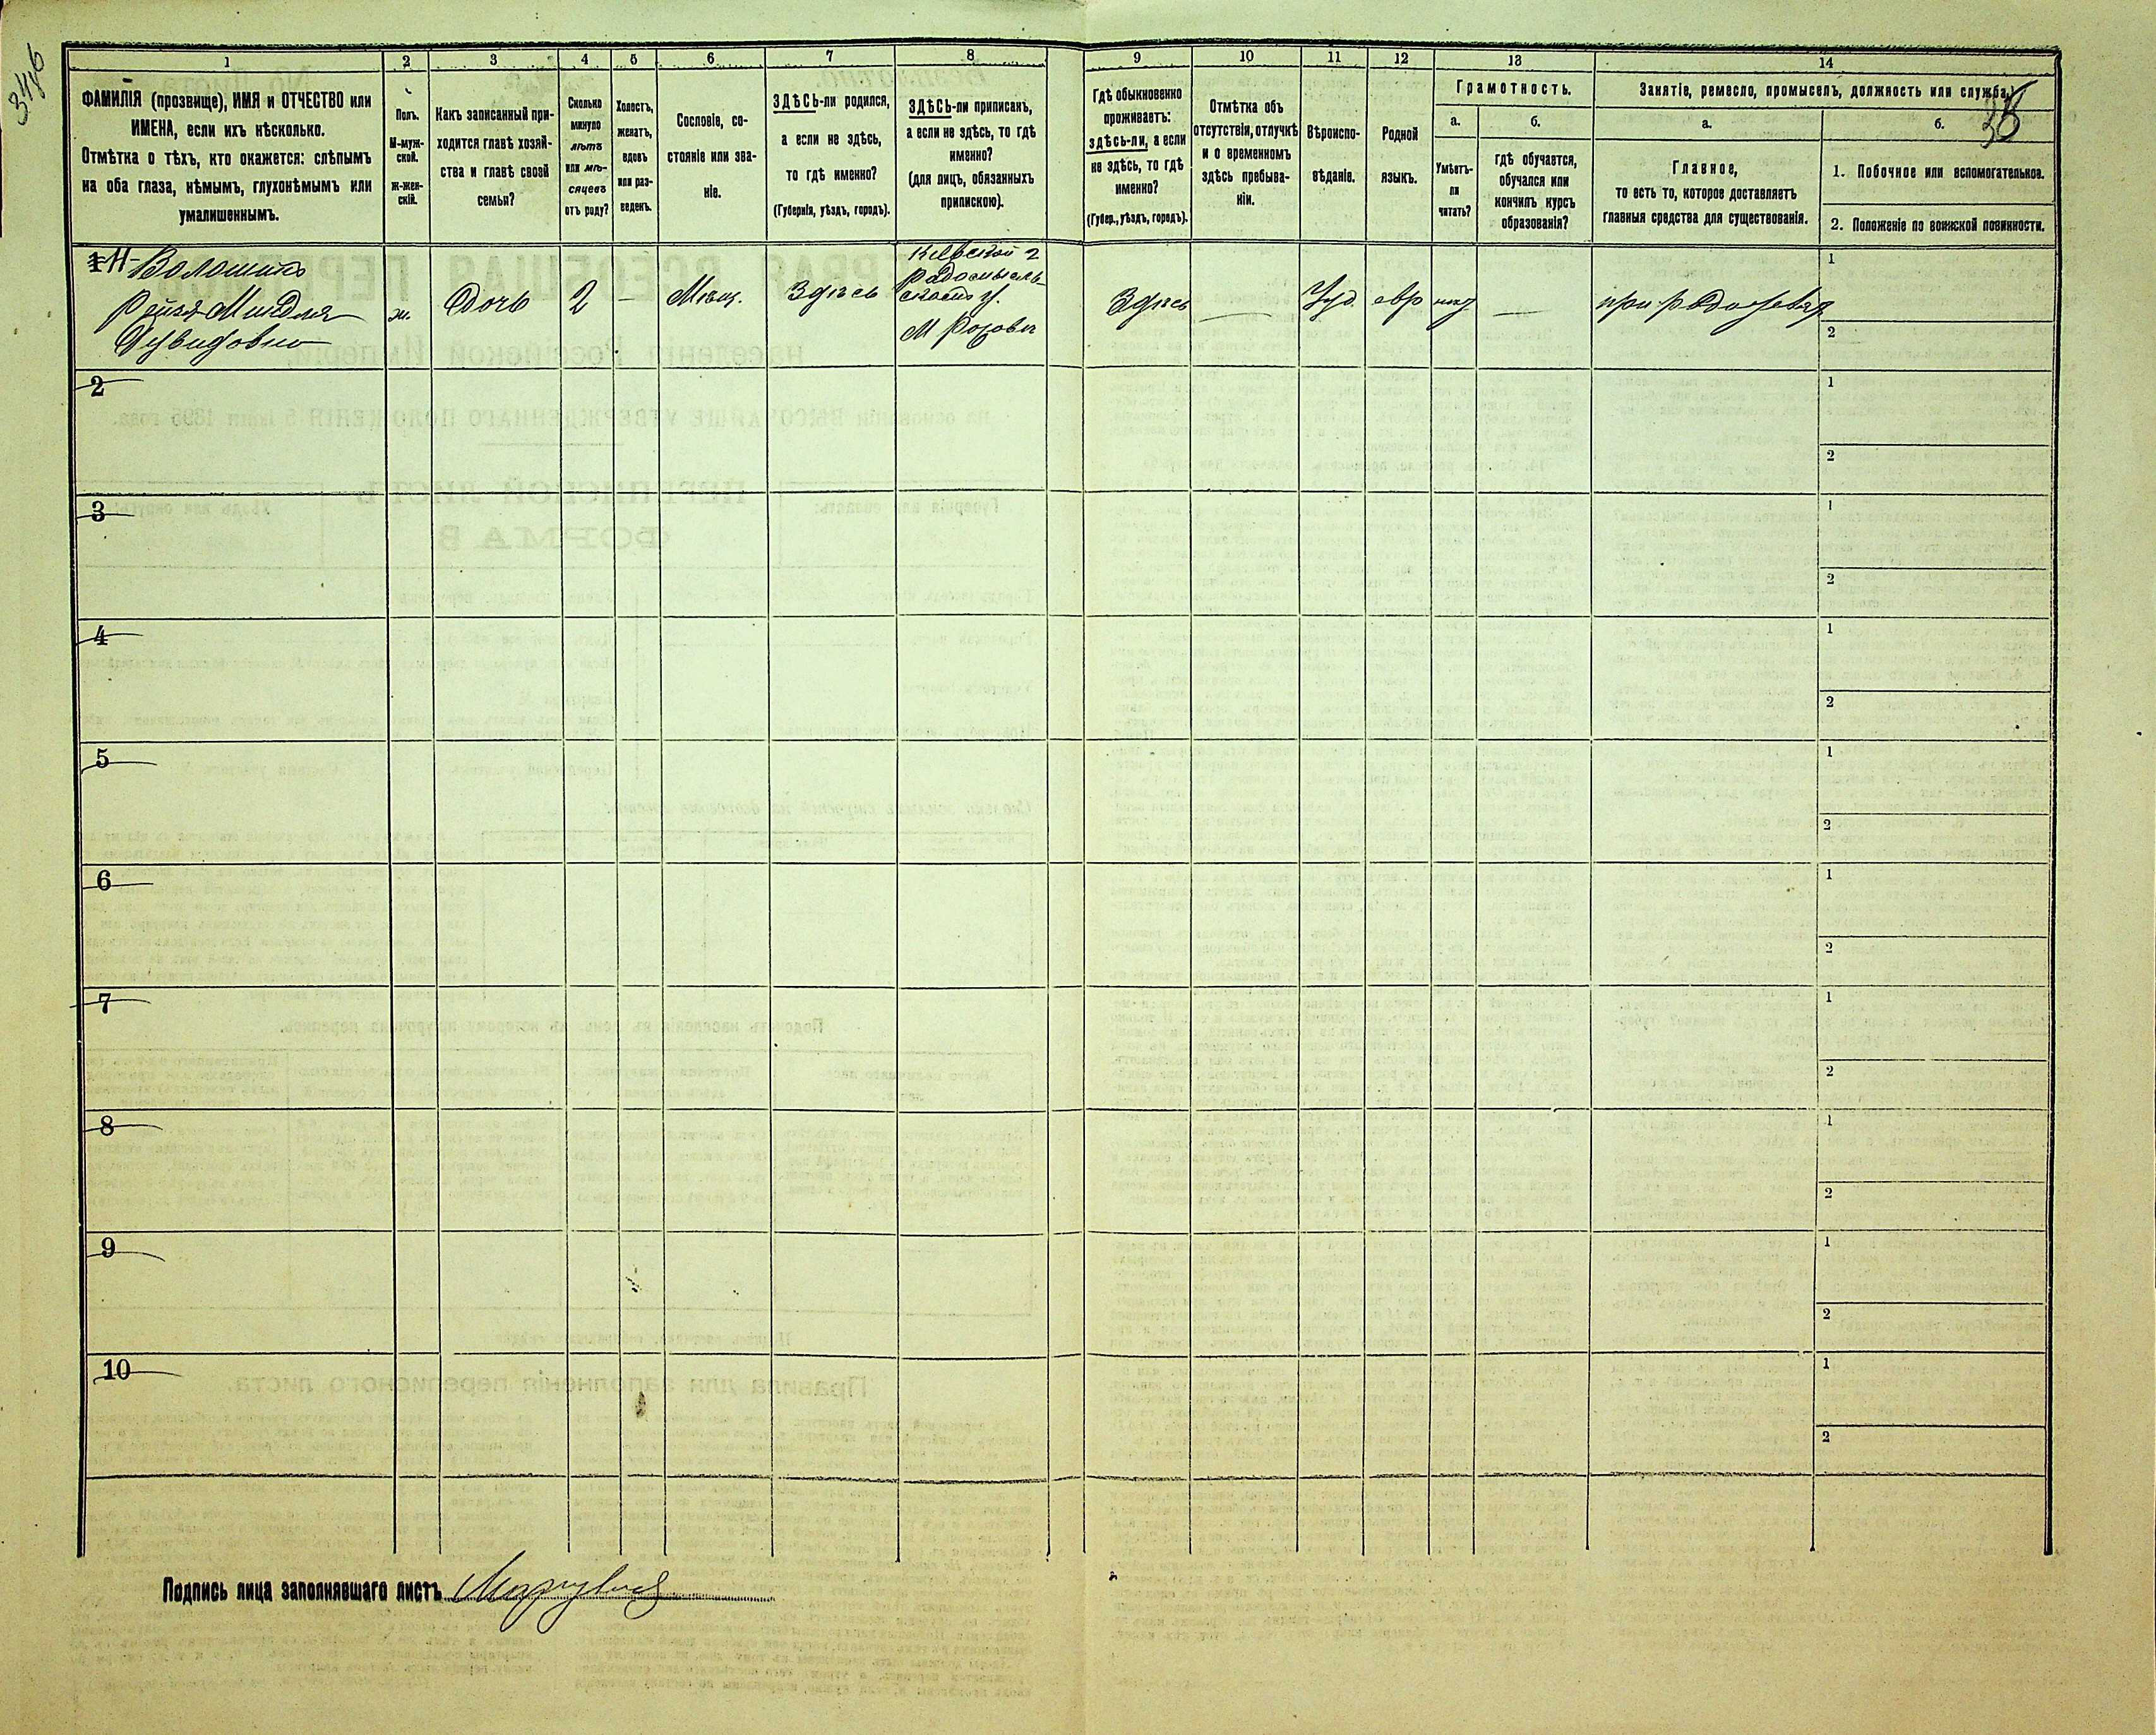 1
2
3
4
5
6
7
8
9
10
11
12
13
14
ФАМИЛІЯ (прозвище), ИМЯ и ОТЧЕСТВО или
ИМЕНА, если ихъ нѣсколько.
Отмѣтка о тѣхъ, кто окажется: слѣпымъ
на оба глаза, нѣмымъ, глухонѣмымъ или
умалишеннымъ.
Полъ.
М-муж-
ской.
Ж-жен-
скій.
Какъ записанный при-
ходится главѣ хозяй-
ства и главѣ своей
семьи?
Сколько
минуло
лѣтъ
или мѣ-
сяцевъ
отъ роду?
Холостъ,
женатъ,
вдовъ
или раз-
веденъ.
Сословіе, со-
стояніе или зва-
ніе.
ЗДѢСЬ-ли родился,
а если не здѣсь,
то гдѣ именно?
(Губернія, уѣздъ, городъ).
ЗДѢСЬ-ли приписанъ,
а если не здѣсь, то гдѣ
именно?
(для лицъ, обязанныхъ
припискою).
Гдѣ обыкновенно
проживаетъ:
здѣсь-ли, а если
не здѣсь, то гдѣ
именно?
(Губер., уѣздъ, городъ).
Отмѣтка объ
отсутствіи, отлучкѣ
и о временномъ
здѣсь пребыва-
ніи.
Вѣроиспо-
вѣданіе.
Родной
языкъ.
Грамотность.
а.
Умѣетъ-
ли
читать?
б.
гдѣ обучается,
обучался или
кончилъ курсъ
образованія?
Занятіе, ремесло, промыселъ, должность или служба.
а.
Главное,
то есть то, которое доставляетъ
главныя средства для существованія.
б.
1. Побочное или вспомогательное.
2. Положеніе по воинской повинности.
11
Рейзя-Миндля
ж.
Дочь
2
—
Мѣщ.
Здѣсь
М
Здѣсь
—
Іуд.
евр
нѣт
—
при
1
2
2
1
2
3
1
2
4
1
2
5
1
2
6
1
2
7
1
2
8
1
2
9
1
2
10
1
2
Подпись лица заполнявшаго листъ